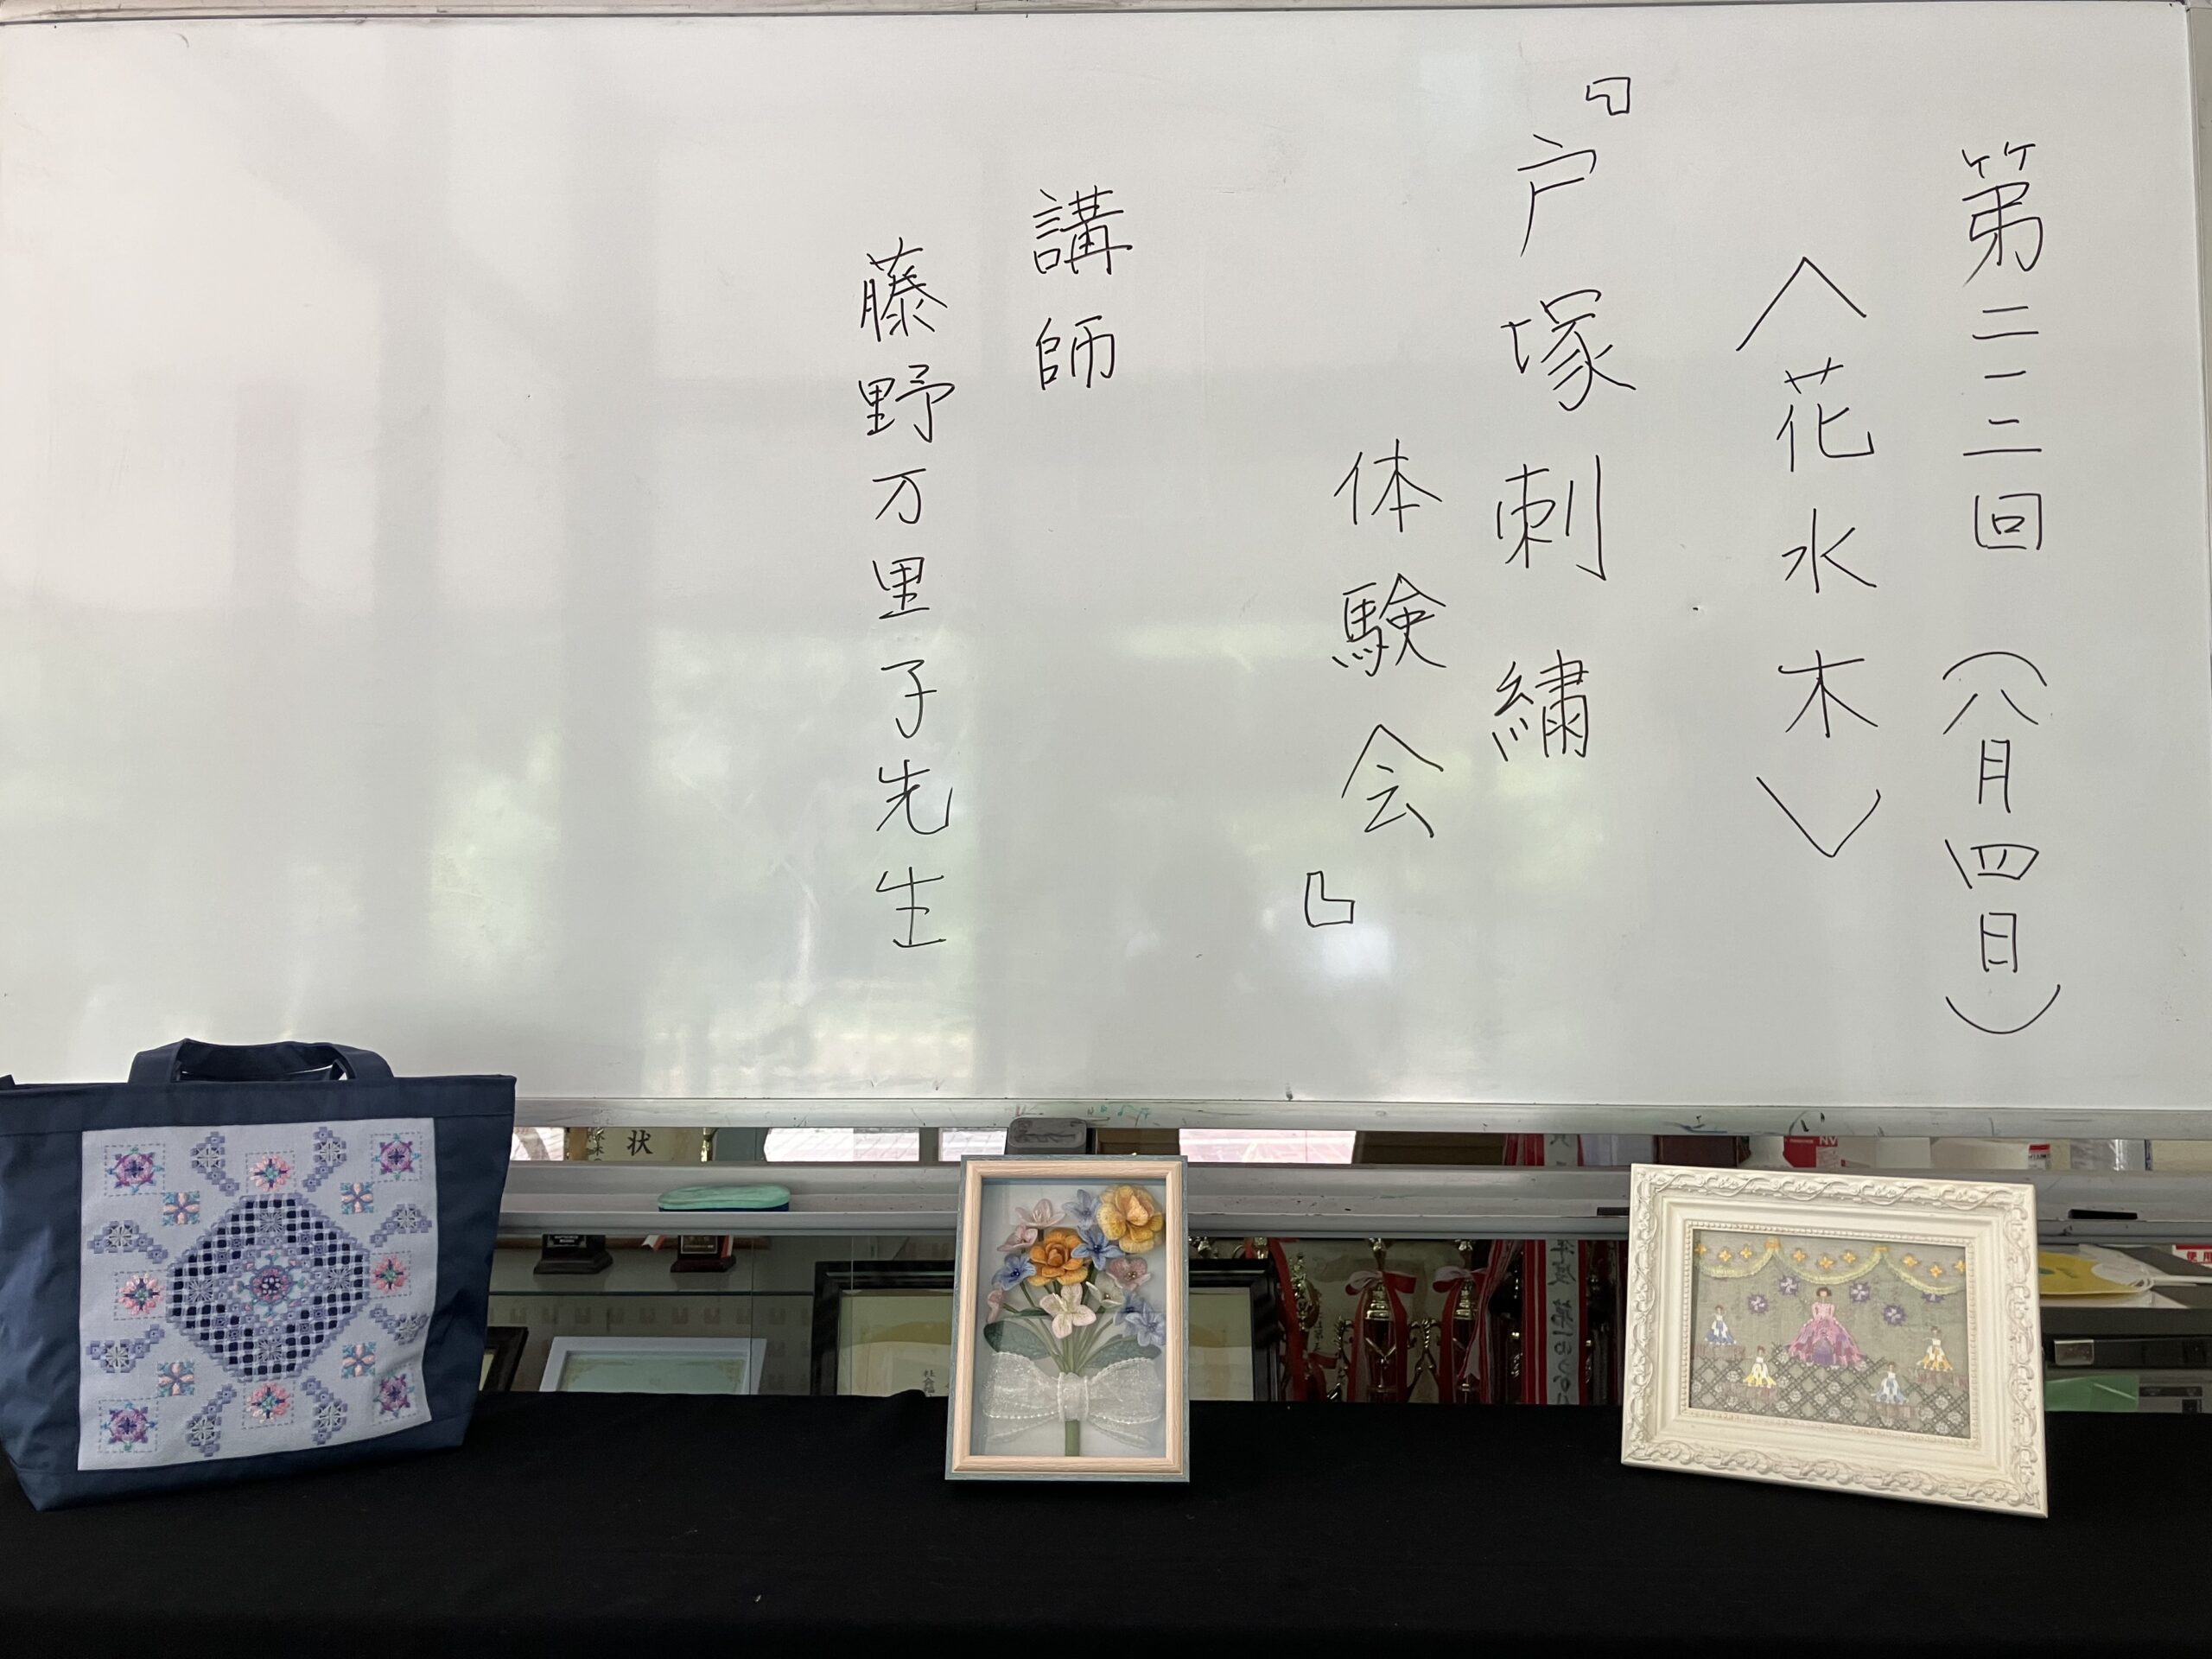 第二三回 (八月四日)
〈花水木〉
『戸塚刺繍
体験会』
講師
藤野万里子先生
状
NV
使用